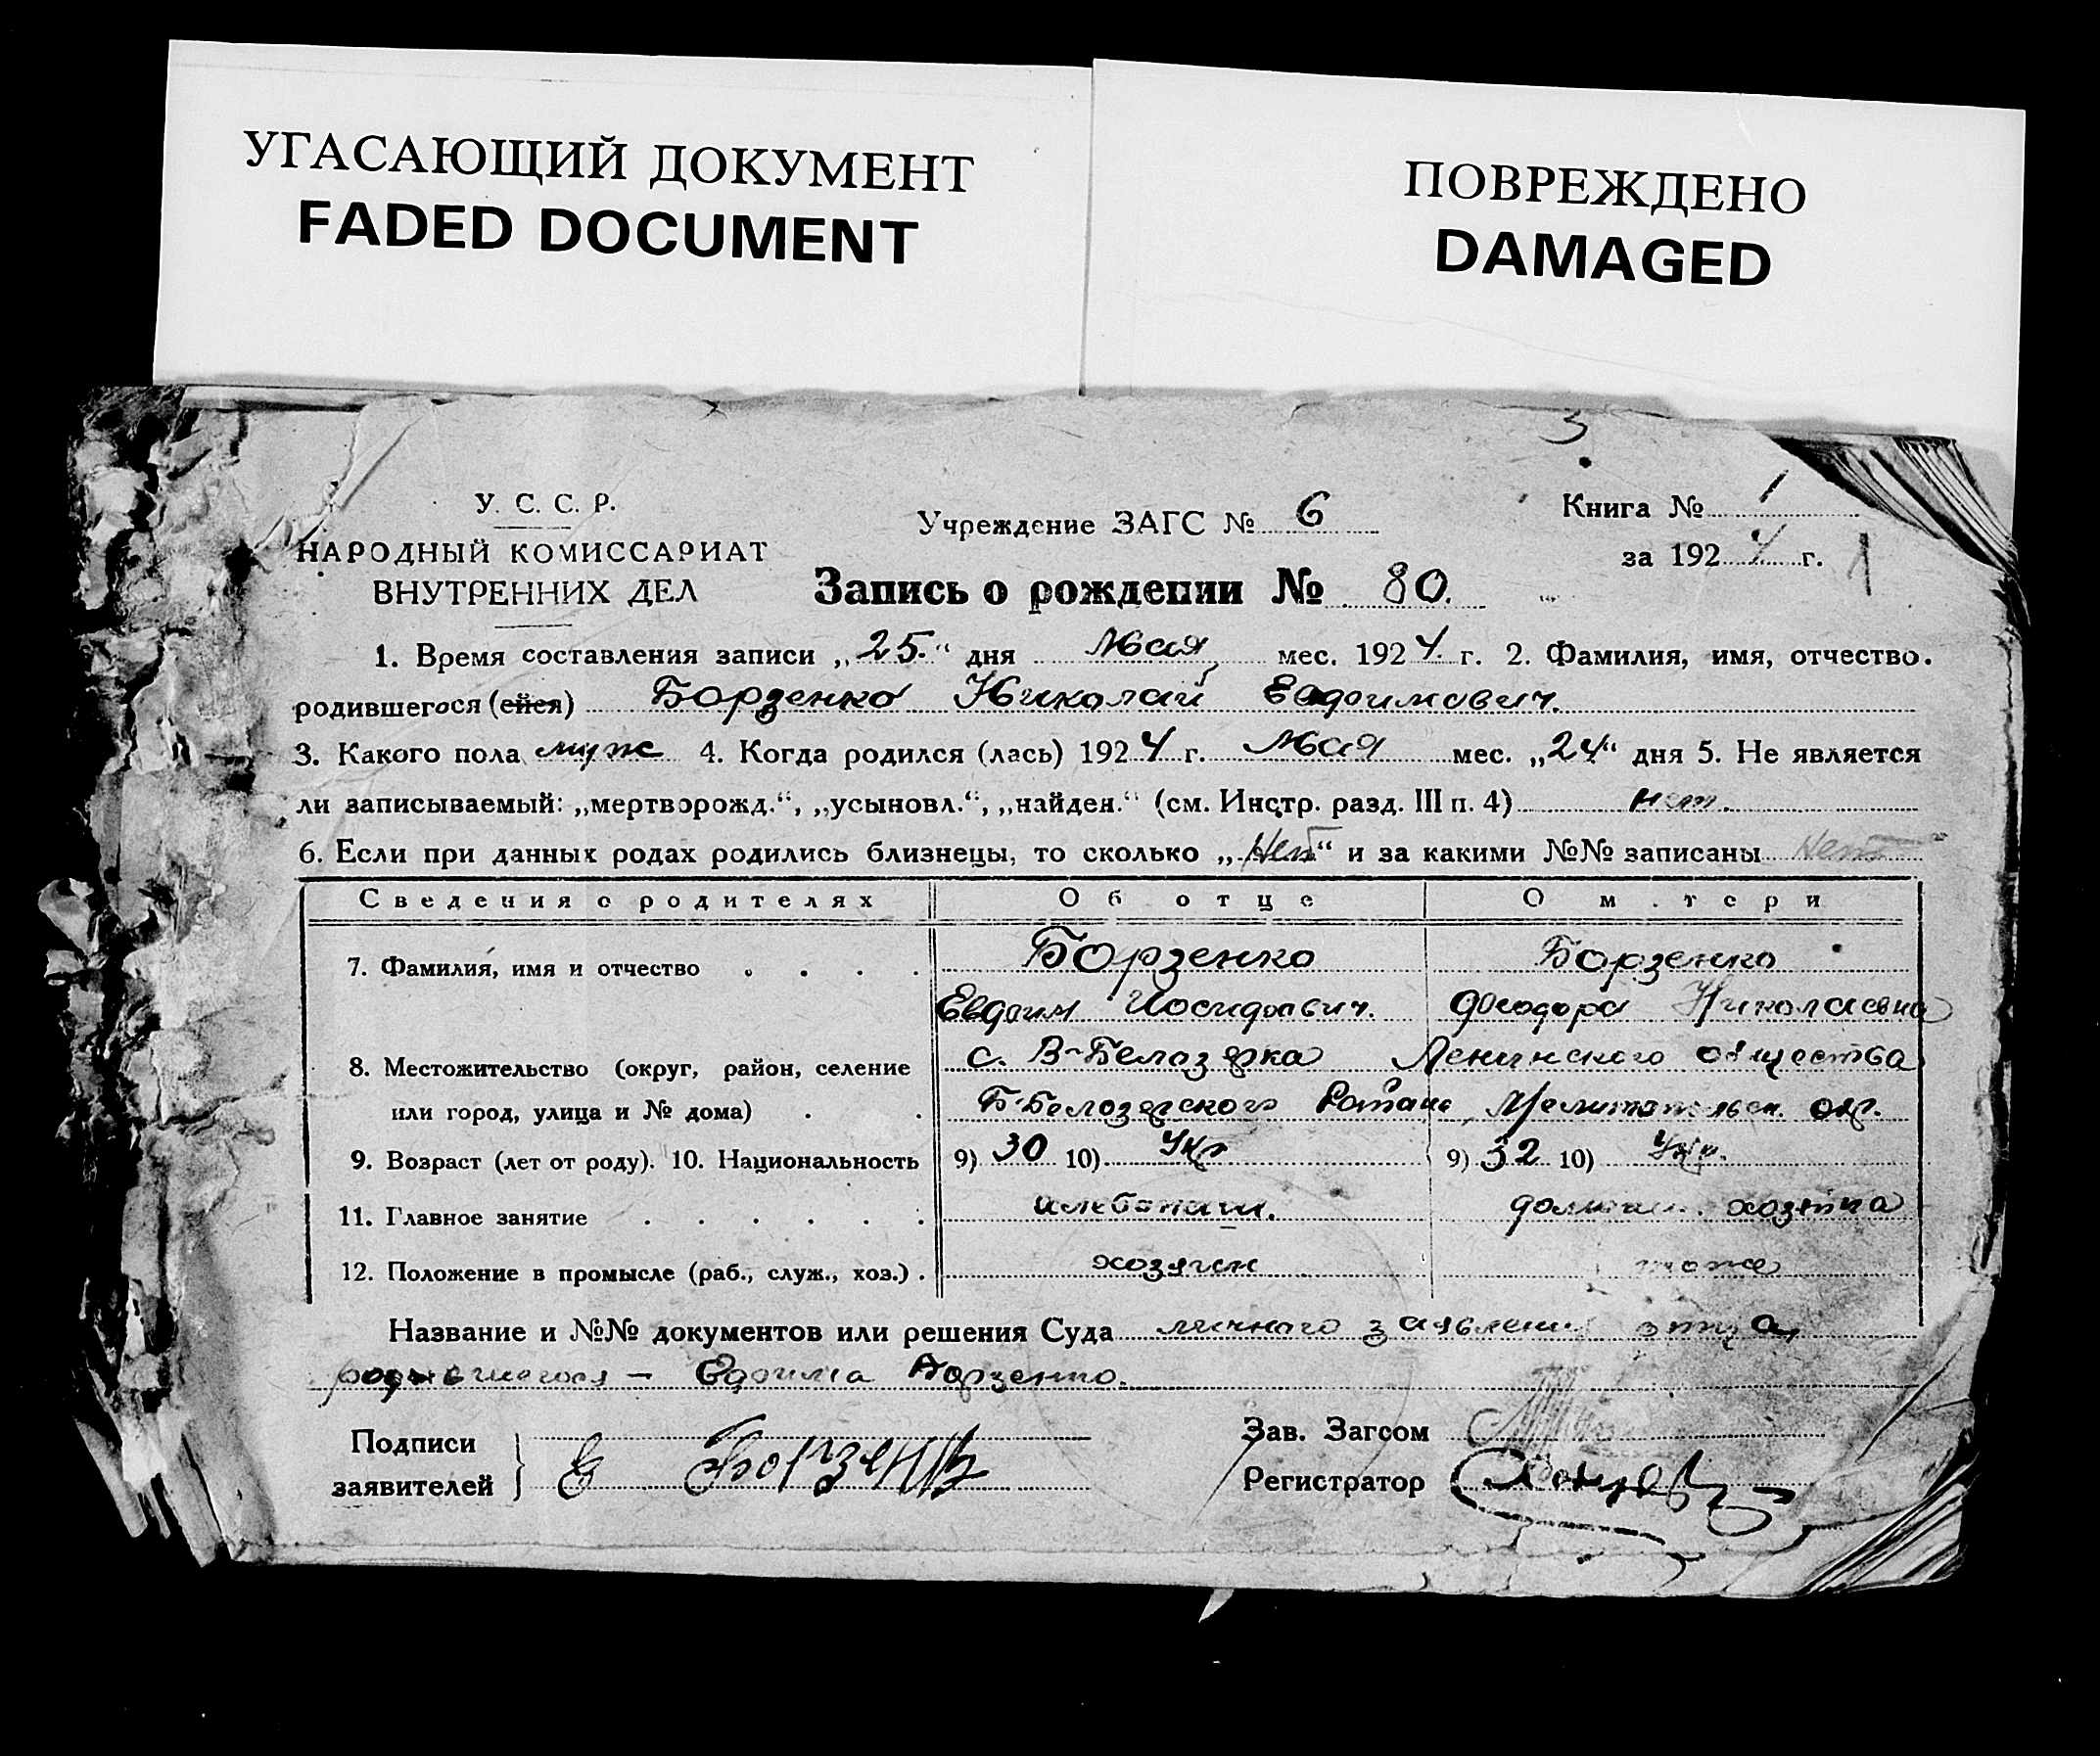 УГАСАЮЩИЙ ДОКУМЕНТ
FADED DOCUMENT
ПОВРЕЖДЕНО
DAMAGED
3
У. С. С. Р.
НАРОДНЫЙ КОМИССАРИАТ
ВНУТРЕННИХ ДЕЛ
Учреждение ЗАГС № 6
Книга № 1
за 1924 г. 1
Запись о рождении № 80.
1. Время составления записи „25.“ дня Мая мес. 1924. г. 2. Фамилия, имя, отчество.
родившегося (ейся) Борзенко Николай Евдоимович.
3. Какого пола муж 4. Когда родился (лась) 1924 г. Мая мес. „24“ дня 5. Не является
ли записываемый: „мертворожд.“, „усыновл.“, „найден.“ (см. Инстр. разд. III п. 4) нет.
6. Если при данных родах родились близнецы, то сколько „Нет“ и за какими №№ записаны Нет
Сведения о родителях Об отце О м.тери
7. Фамилия, имя и отчество . . . . Борзенко Борзенко
Евдоим Иосифович. Феодора Николаевна
8. Местожительство (округ, район, селение с. В-Белазерка Ленинского общества
или город, улица и № дома) . . Б-Белозерского Района, Мелитопольск. окр.
9. Возраст (лет от роду). 10. Национальность 9) 30 10) Укр 9) 32 10) Укр.
11. Главное занятие . . . . . . хозяйка
12. Положение в промысле (раб., служ., хоз.) . хозяин тоже
Название и №№ документов или решения Суда личного заявлени отца,
родившегося — Едоима Борзенко.
Подписи
заявителей } Е Борзенко
Зав. Загсом
Регистратор